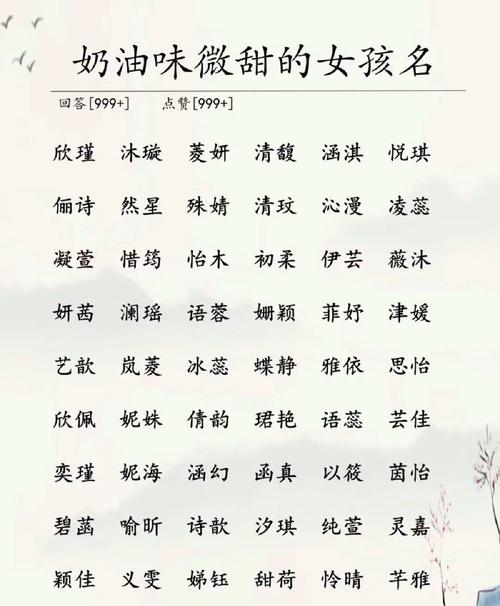 奶油味微甜的女孩名
回答[999+] 点赞[999+]
欣瑾 沐璇 菱妍 清馥 涵淇 悦琪
俪诗 然星 殊婧 清玟 沁漫 凌蕊
凝萱 惜筠 怡木 初柔 伊芸 薇沐
妍茜 澜瑶 语蓉 姗颖 菲妤 津媛
艺歆 岚菱 冰蕊 蝶静 雅依 思怡
欣佩 妮姝 倩韵 珺艳 语蕊 芸佳
奕瑾 妮海 涵幻 函真 以筱 茵怡
碧菡 喻昕 诗歆 汐琪 纯萱 灵嘉
颖佳 义雯 娣钰 甜荷 怜晴 芊雅